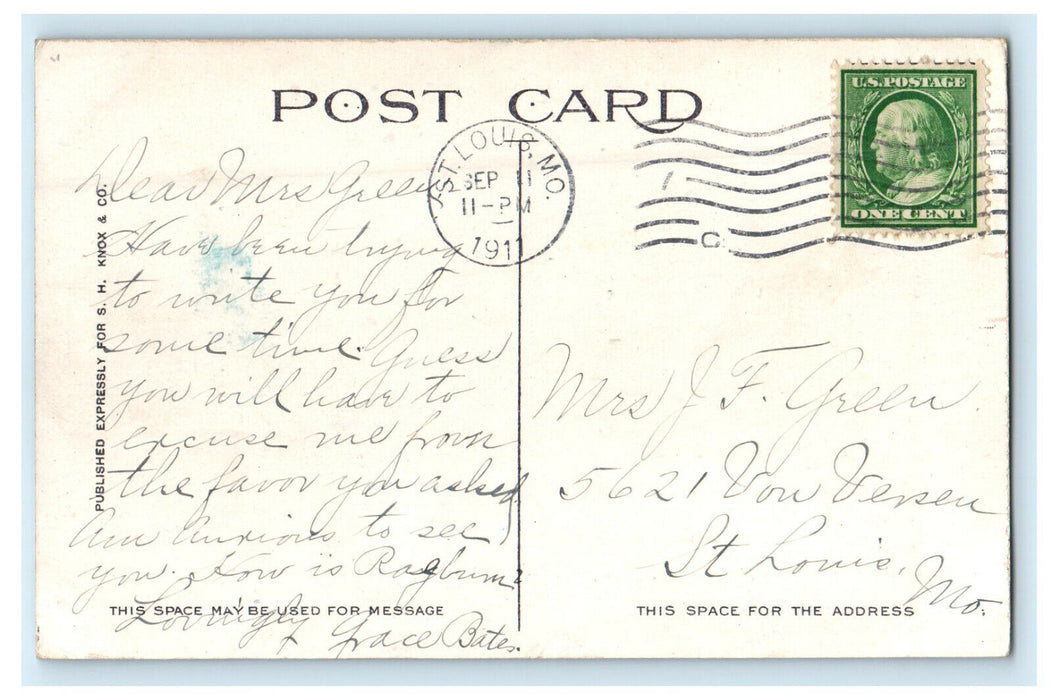 POST CARD
U.S. POSTAGE
ONE CENT
ST. LOUIS, MO.
SEP 11
11-PM
1911
C
PUBLISHED EXPRESSLY FOR S. H. KNOX & CO.
Dear Mrs Green
Have been trying
to write you for
some time. Guess
you will have to
excuse me from
the favor you asked
Am anxious to see
you. How is Rayburn?
Lovingly
Grace Bates.
THIS SPACE MAY BE USED FOR MESSAGE
Mrs J. F. Green
5621 Von Versen
St Louis,
Mo.
THIS SPACE FOR THE ADDRESS